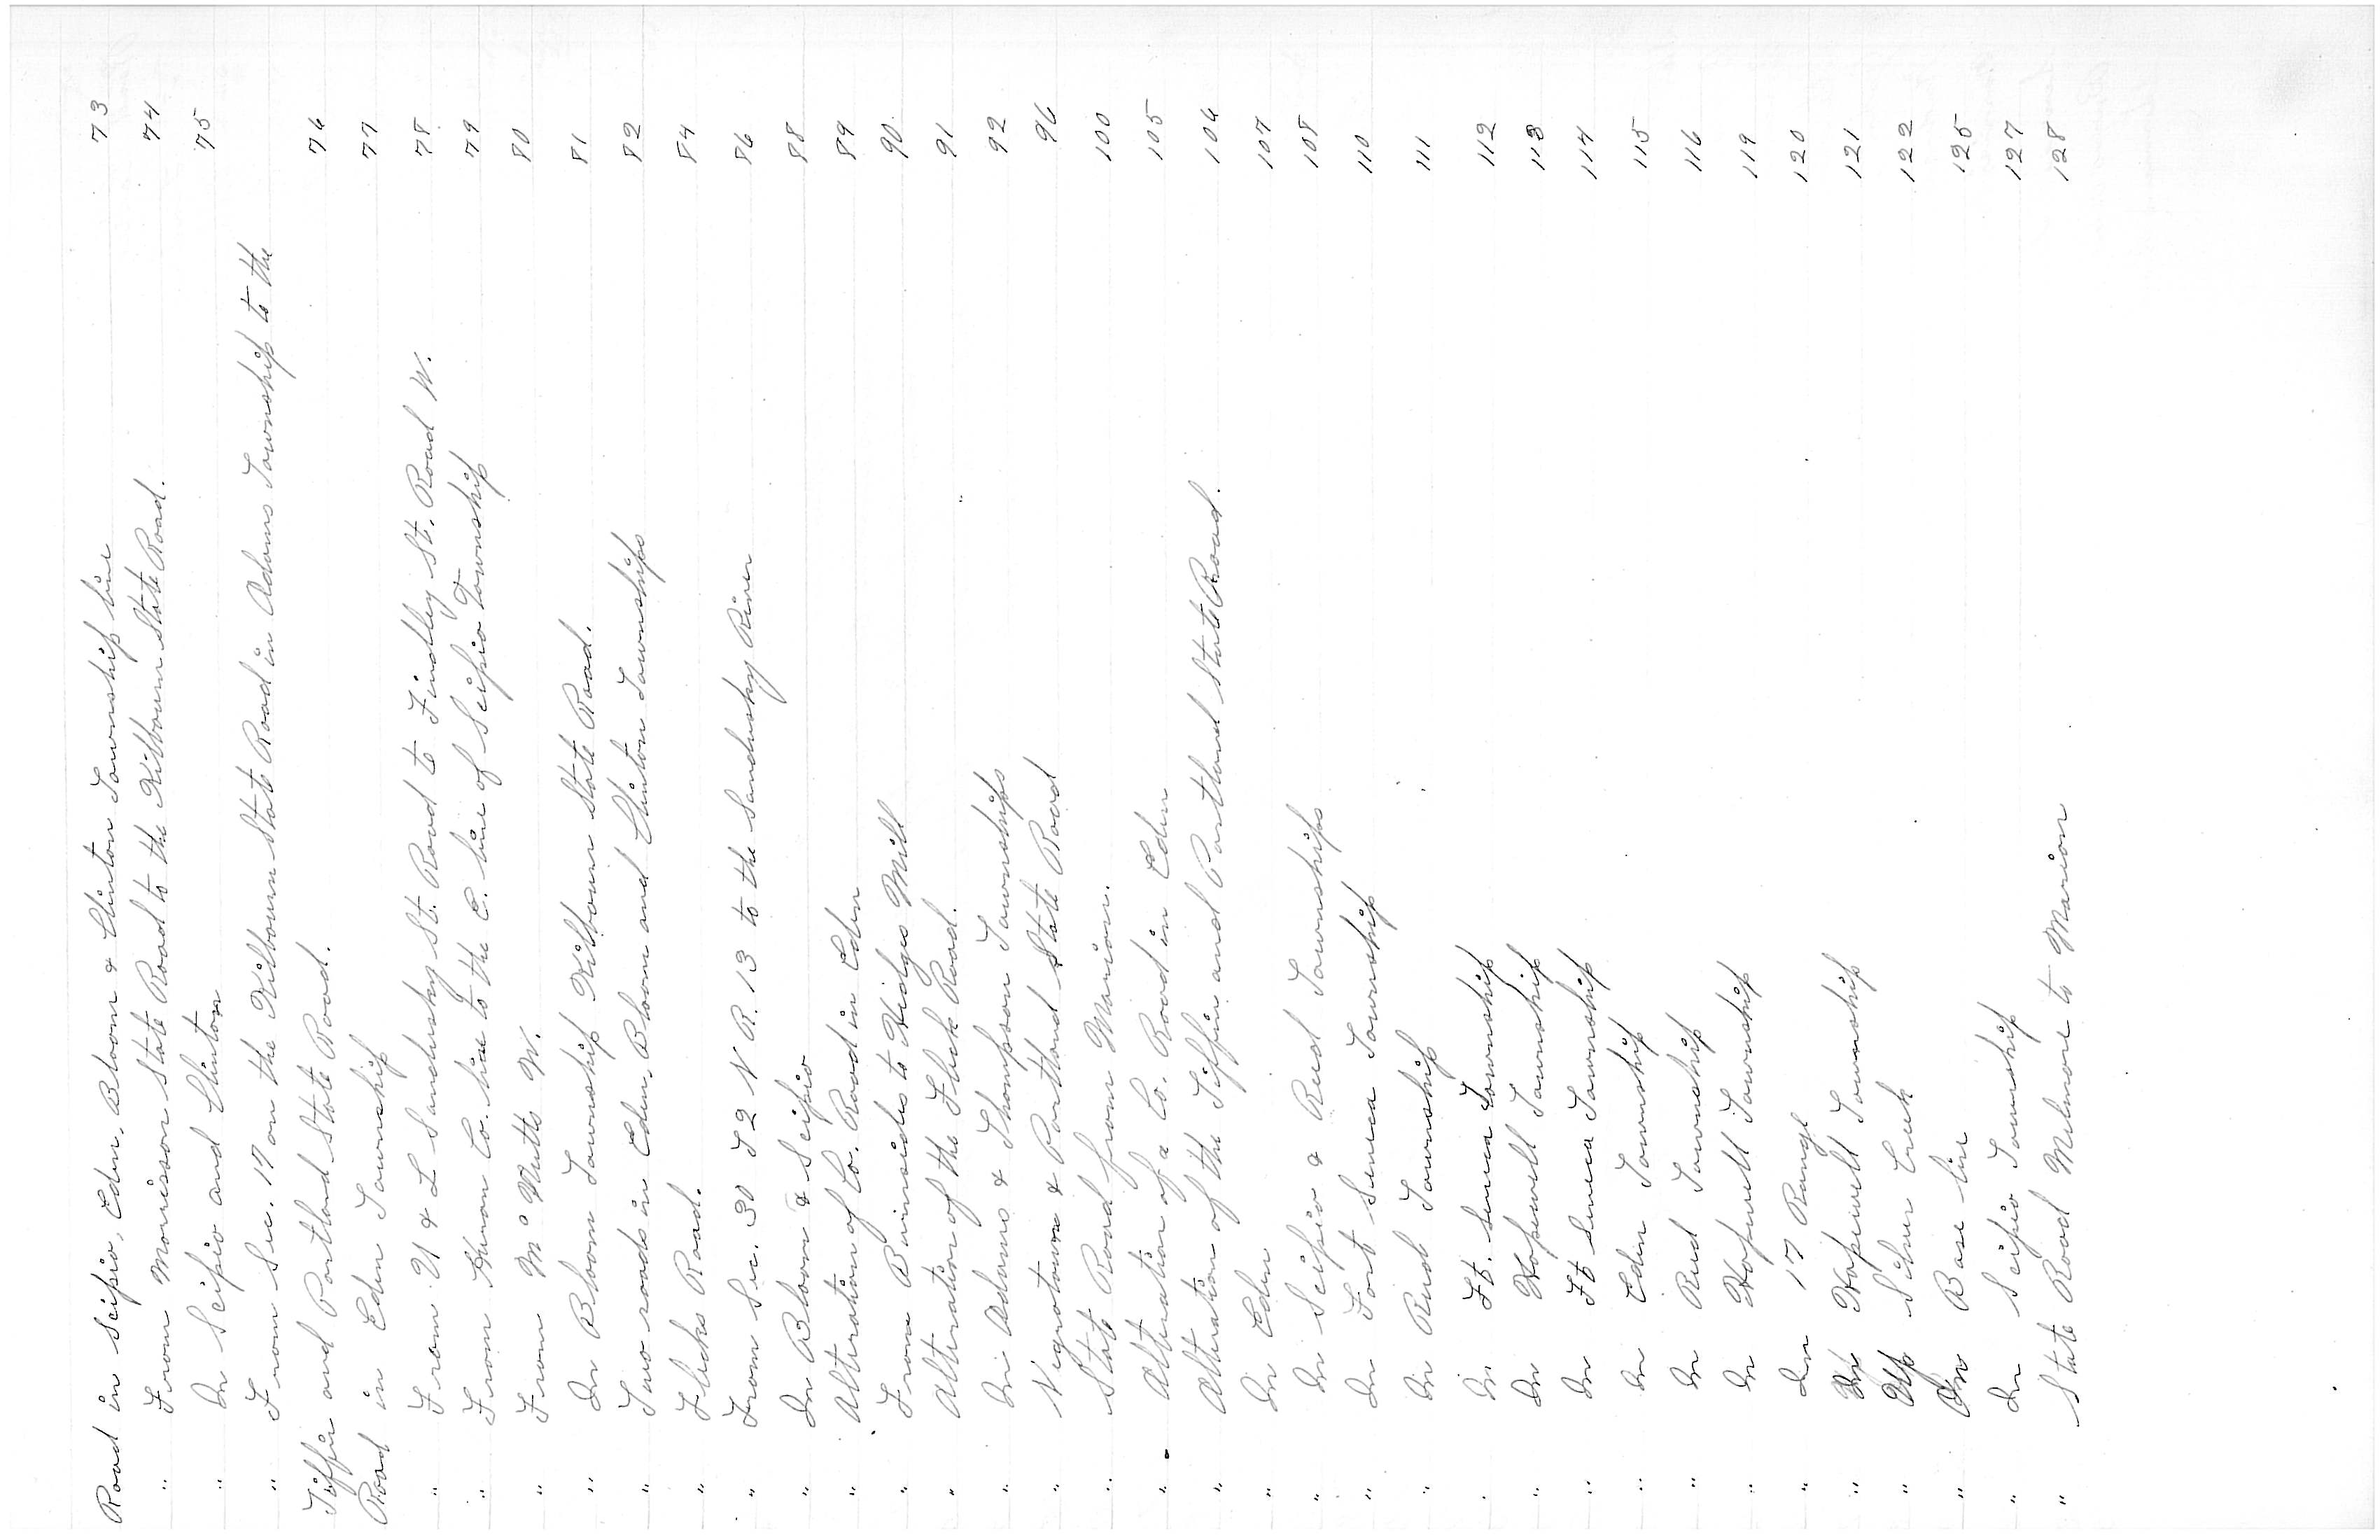 Road in Scipio, Eden, Bloom & Clinton Township line 73
" From Morrison State Road to the Kilbourn State Road. 74
" In Scipio and Clinton 75
" From Sec. 17 on the Kilbourn State Road in Adams Township to the
Tiffin and Portland State Road. 76
Road in Eden Township 77
" From U & L Sandusky St. Road to Findley St. Road W. 78
" From Huron Co. line to the E. line of Scipio Township 79
" From Mc Nutts W. 80
" In Bloom Township Kilbourn State Road. 81
" Two roads in Eden, Bloom and Clinton Townships 82
" Flecks Road. 84
" From Sec. 30 T2 N R. 13 to the Sandusky River 86
" In Bloom & Scipio 88
" Alteration of Co. Road in Eden 89
" From Burnsides to Hedges Mill 90
" Alteration of the Fleck Road. 91
" In Adams & Thompson Townships 92
" Negrotown & Portland State Road 96
" State Road from Marion. 100
" Alteration of a Co. Road in Eden 105
" Alteration of the Tiffin and Portland State Road. 106
" In Eden 107
" In Scipio & Reed Townships 108
" In Fort Seneca Township 110
" In Reed Township 111
" In Ft. Seneca Township 112
" In Hopewell Township 113
" In Ft Seneca Township 114
" In Eden Township 115
" In Reed Township 116
" In Hopewell Township 119
" In 17 Range 120
" In Hopewell Township 121
" Up Silver Creek 122
" On Base line 125
" In Scipio Township 127
" State Road Melmore to Marion 128